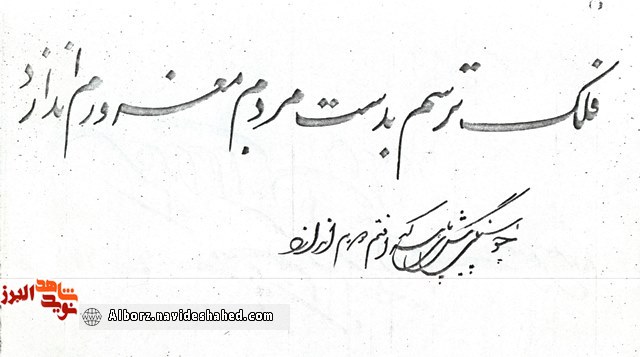 فلک ترسم بدست مردم مغرورم اندازد
چو سنگی پیش پای افتم دورم اندازد
نوید شاهد البرز
Alborz.navideshahed.com